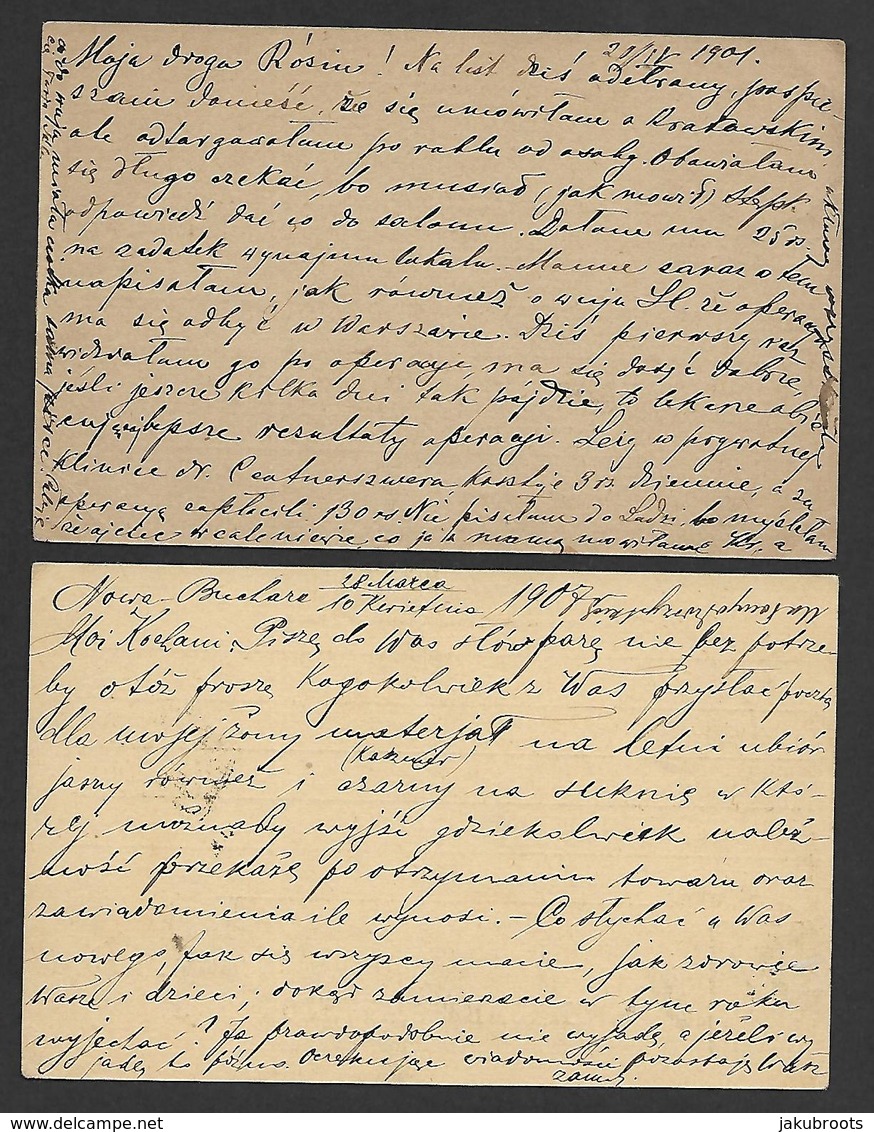 20/IV 1901.
Moja droga Rósiu! Na list dziś odebrany, pospie-
szam donieść, że się umówiłam o Krakowskim
ale odtargowałam po rublu od osoby. Obawiałam
się długo czekać, bo musiał, jak mówił
odpowiedź dać co do salonu. Dałam mu 25 rs.
na zadatek wynajmu lokalu. Mamie zaraz o tem
napisałam, jak również o wuju H. że operacja
ma się odbyć w Warszawie. Dziś pierwszy raz
widziałam go po operacji, ma się dosyć dobrze,
jeśli jeszcze kilka dni tak pójdzie, to lekarze obie-
cują najlepsze rezultaty operacji. Leży w prywatnej
klinice dr. Centnerszwera kosztuje 3 rs. dziennie, a za
operację zapłacili 130 rs. Nie pisałam do Ludzi, bo myślałam
że ojciec wcale nie wie, co ja z mamą mówiłam
Nowa-Buchara 28 Marca / 10 Kwietnia 1907
Moi Kochani. Piszę do Was słów parę nie bez potrze-
by otóż proszę Kogokolwiek z Was przysłać pocztą
dla mojej żony materjał na letni ubiór
jasny również i (Kazmir) czarny na suknię w Któ-
rej możnaby wyjść gdziekolwiek należ-
ność przekażę po otrzymaniu towaru oraz
zawiadomienia ile wynosi. – Co słychać u Was
nowego, Jak się wszyscy macie, jak zdrowie
Wasze i dzieci; dokąd zamierzacie w tym roku
wyjechać? Ja prawdopodobnie nie wyjadę, a jeżeli wy-
jadę to późno. Oczekując wiadomości pozostaję Wasz
jakubroots